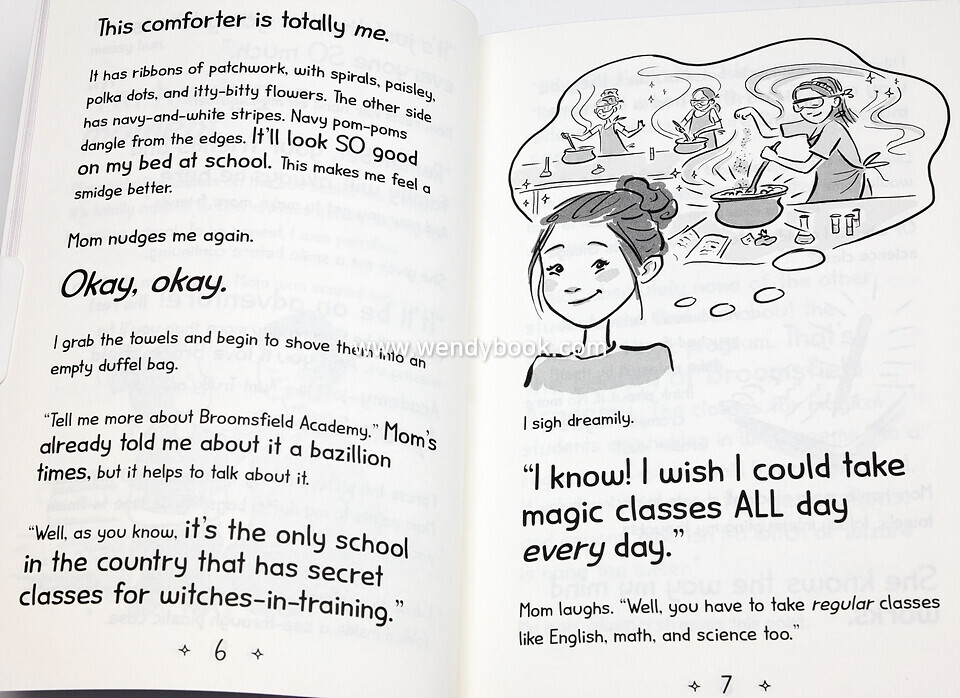 This comforter is totally me.
It has ribbons of patchwork, with spirals, paisley,
polka dots, and itty-bitty flowers. The other side
has navy-and-white stripes. Navy pom-poms
dangle from the edges. It'll look SO good
on my bed at school. This makes me feel a
smidge better.
Mom nudges me again.
Okay, okay.
I grab the towels and begin to shove them into an
empty duffel bag.
“Tell me more about Broomsfield Academy.” Mom's
already told me about it a bazillion
times, but it helps to talk about it.
“Well, as you know, it's the only school
in the country that has secret
classes for witches-in-training.”
6
www.wendybook.com
I sigh dreamily.
“I know! I wish I could take
magic classes ALL day
every day.”
Mom laughs. “Well, you have to take regular classes
like English, math, and science too.”
7